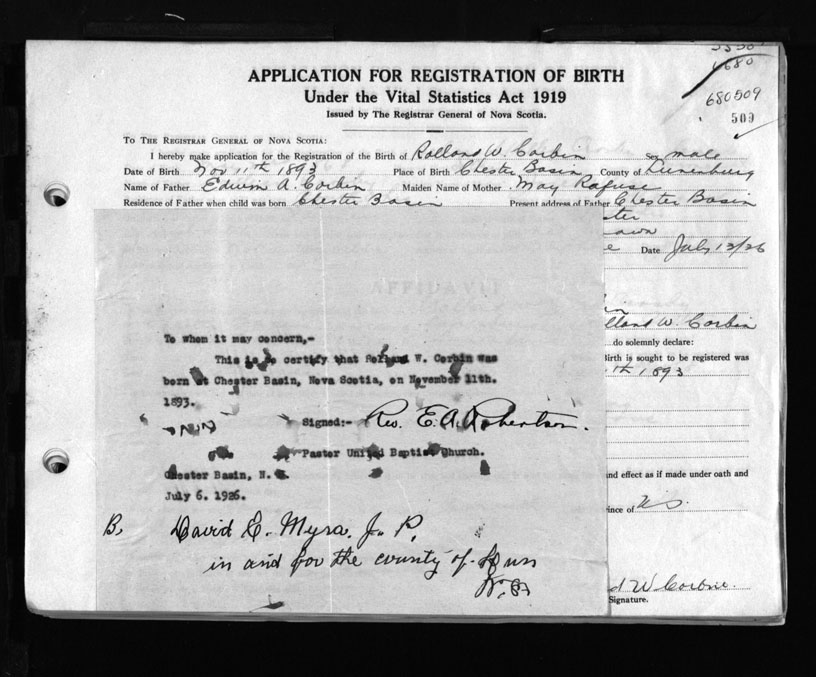 680
680509
509
APPLICATION FOR REGISTRATION OF BIRTH
Under the Vital Statistics Act 1919
Issued by The Registrar General of Nova Scotia.
To The Registrar General of Nova Scotia:
I hereby make application for the Registration of the Birth of Rolland W. Corbin Sex male
Date of Birth Nov 11th 1893 Place of Birth Chester Basin County of Lunenburg
Name of Father Edwin A. Corbin Maiden Name of Mother May Rafuse
Residence of Father when child was born Chester Basin Present address of Father Chester Basin
Date July 12/26
AFFIDAVIT
Rolland W Corbin
do solemnly declare:
Birth is sought to be registered was
th 1893
To whom it may concern,-
This is to certify that Rolland W. Corbin was
born at Chester Basin, Nova Scotia, on November 11th.
1893.
Signed:- Rev. E. A. Robertson.
Pastor United Baptist Church.
Chester Basin, N. S.
July 6. 1926.
and effect as if made under oath and
ince of N.S.
B, David E. Myra, J. P.
in and for the county of Lun
N.S
d W Corbin.
Signature.